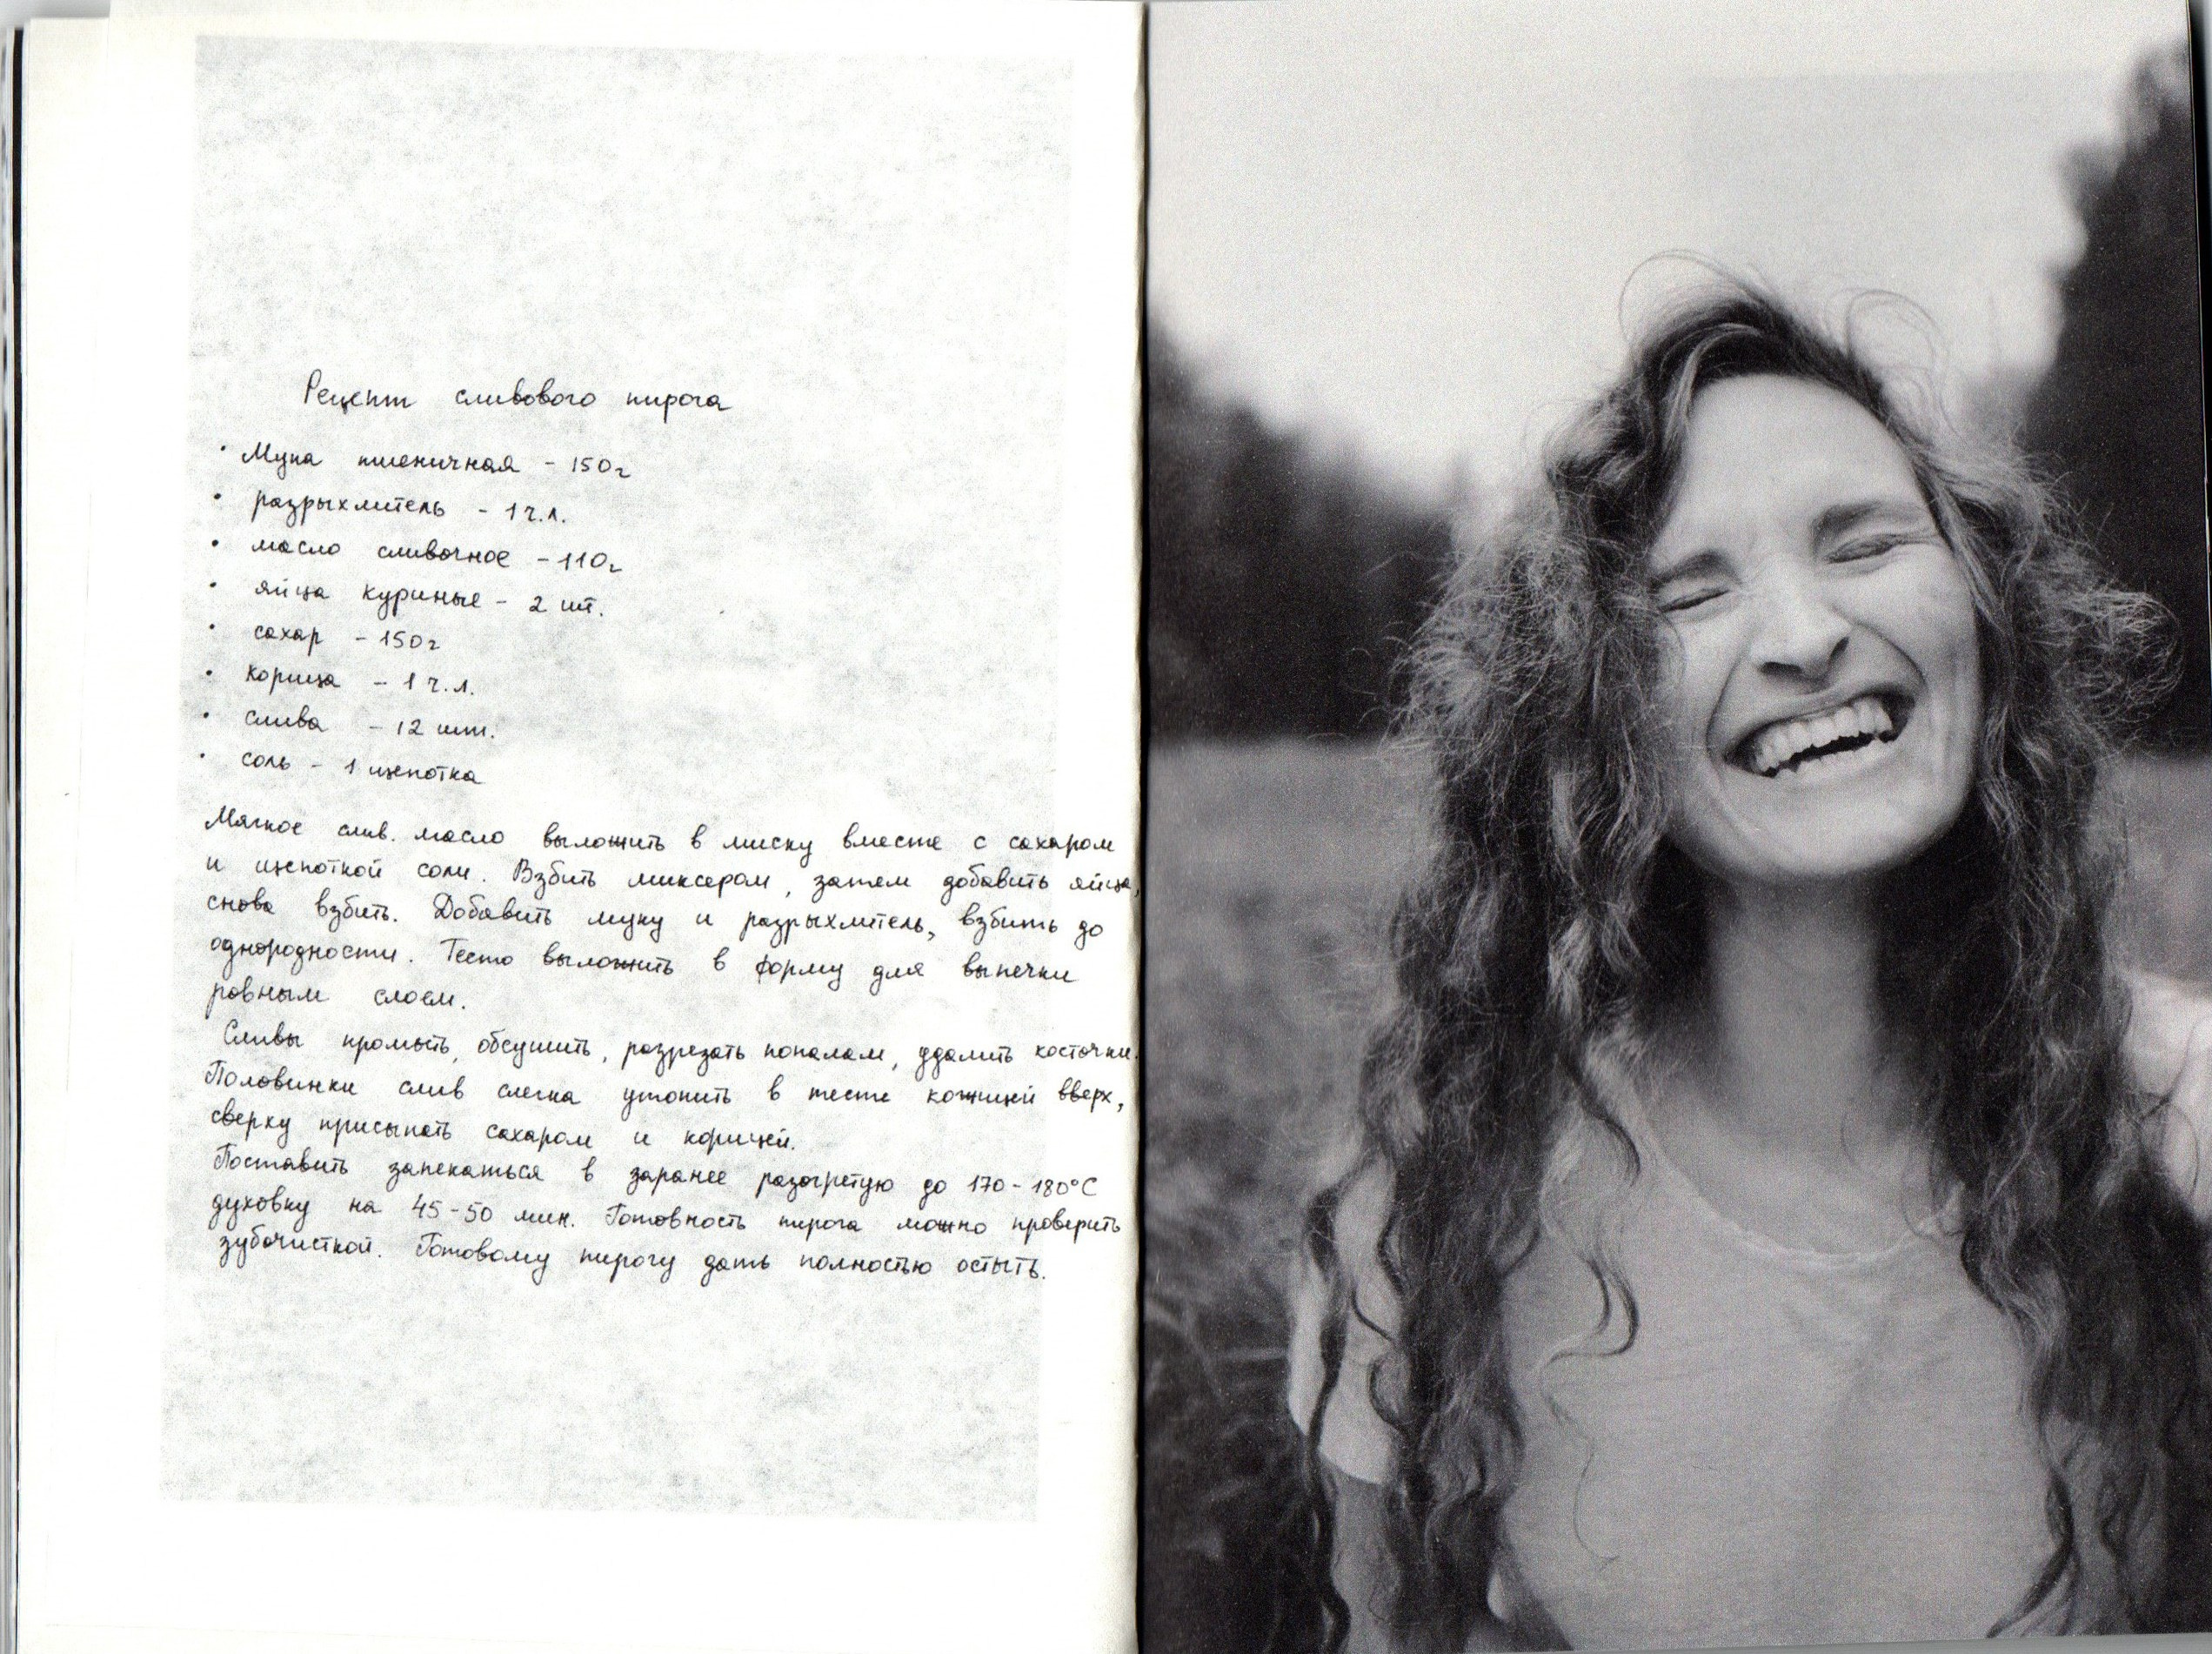 Рецепт сливового пирога
• Мука пшеничная - 150г
• разрыхлитель - 1 ч.л.
• масло сливочное - 110г
• яйца куриные - 2 шт.
• сахар - 150г
• корица - 1 ч.л.
• слива - 12 шт.
• соль - 1 щепотка
Мягкое слив. масло выложить в миску вместе с сахаром
и щепоткой соли. Взбить миксером, затем добавить яйца,
снова взбить. Добавить муку и разрыхлитель, взбить до
однородности. Тесто выложить в форму для выпечки
ровным слоем.
Сливы промыть, обсушить, разрезать пополам, удалить косточки.
Половинки слив слегка утопить в тесте кожицей вверх,
сверху присыпать сахаром и корицей.
Поставить запекаться в заранее разогретую до 170-180°С
духовку на 45-50 мин. Готовность пирога можно проверить
зубочисткой. Готовому пирогу дать полностью остыть.